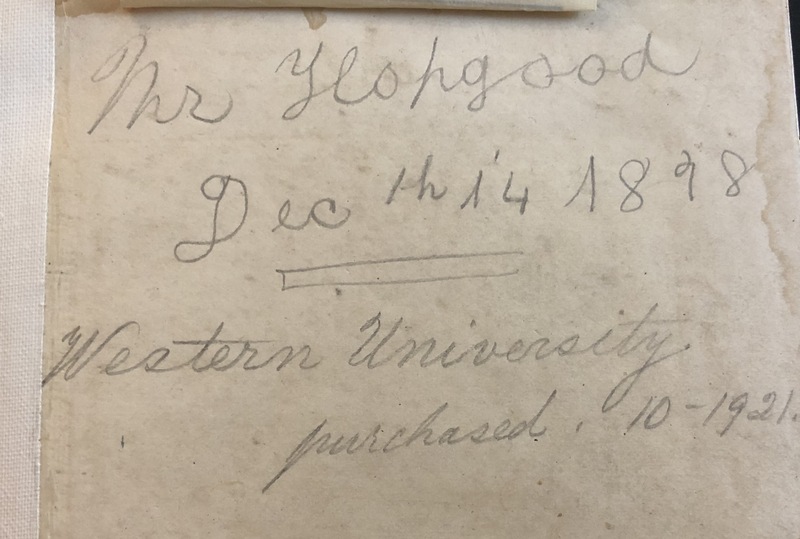 Mr Hopgood
Dec th 14 1898
Western University
purchased. 10-1921.